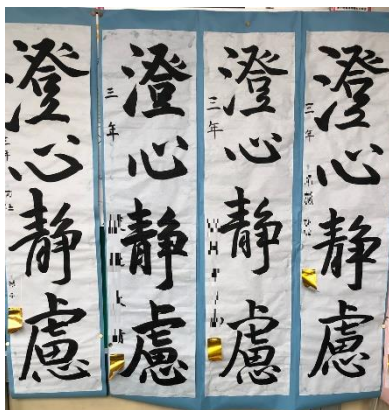 澄心静慮
三年
澄心静慮
三年
澄心静慮
三年
澄心静慮
三年